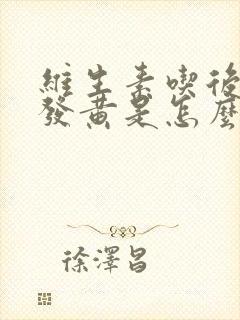 維生素喫後
發黃是怎麼
徐澤昌